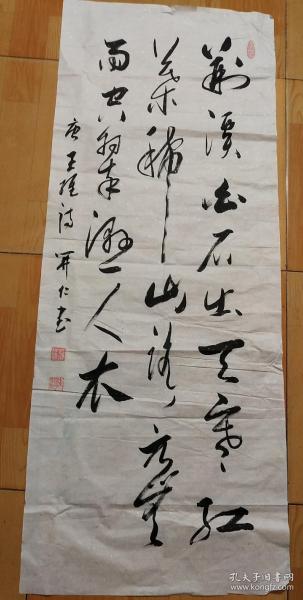 荆溪白石出天寒红
葉稀山路元無
雨空翠濕人衣
唐王维诗 开仁书
孔夫子旧书网
www.kongfz.com